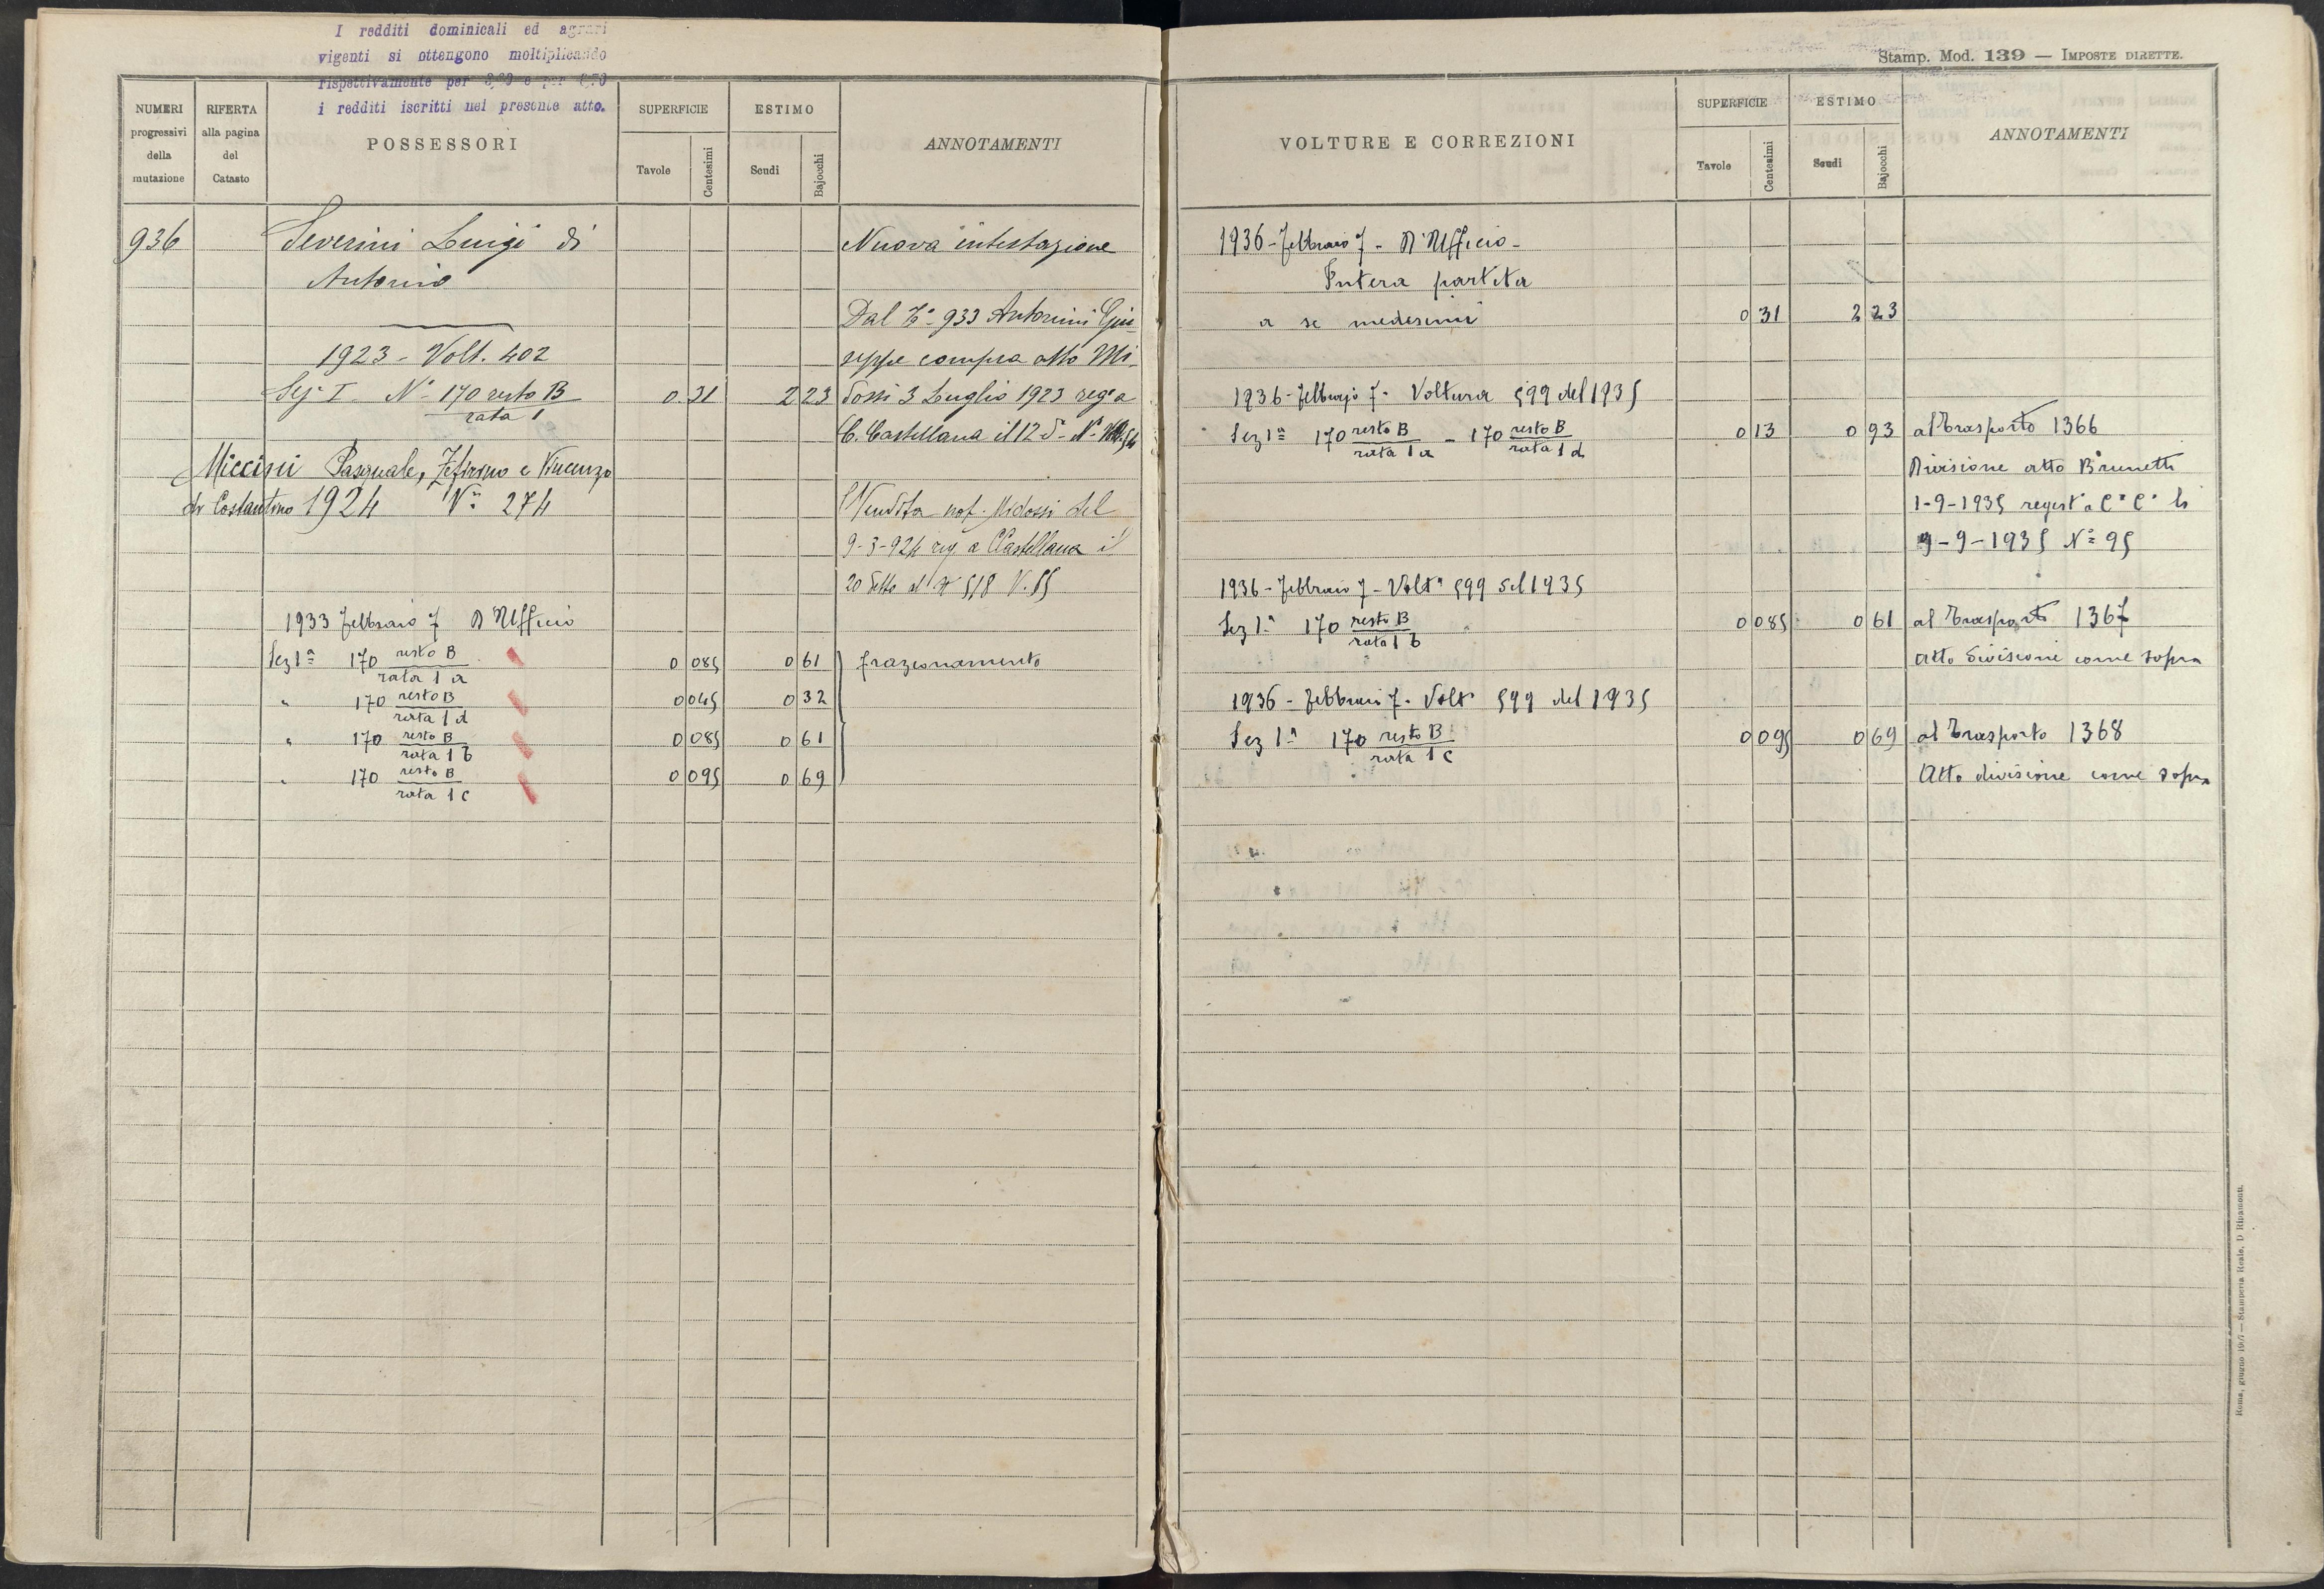 I redditi dominicali ed agrari
vigenti si ottengono moltiplicando
rispettivamente per e per
i redditi iscritti nel presente atto.
NUMERI progressivi della mutazione
RIFERTA alla pagina del Catasto
POSSESSORI
SUPERFICIE
Tavole Centesimi
ESTIMO
Scudi Bajocchi
ANNOTAMENTI
936 Severini Luigi di Nuova intestazione
Antonio
Dal T.° 933 Antonini Giu-
1923 - Volt. 402 seppe compra atto Mi-
Sez I N° 170 resto B / rata 1 0 31 2 23 dossi 3 Luglio 1923 reg° a
C. Castellana il 12 d° N°
Miccini Pasquale, Zefirino e Vincenzo
di Costantino 1924 N° 274 Vendita not. Midossi del
9-3-924 reg a CCastellana il
20 detto al N 518 V. 55
1933 Febbraio 7 D'Ufficio
Sez 1ª 170 resto B / rata 1 a 0 085 0 61 frazionamento
" 170 resto B / rata 1 d 0 045 0 32
" 170 resto B / rata 1 b 0 085 0 61
" 170 resto B / rata 1 c 0 095 0 69
Stamp. Mod. 139 — IMPOSTE DIRETTE.
VOLTURE E CORREZIONI
SUPERFICIE
Tavole Centesimi
ESTIMO
Scudi Bajocchi
ANNOTAMENTI
1936 - Febbraio 7 - D'Ufficio -
Intera partita
a se medesimi 0 31 2 23
1936 - Febbraio 7 - Voltura 599 del 1935
Sez 1ª 170 resto B / rata 1 a - 170 resto B / rata 1 d 0 13 0 93 al trasporto 1366
Divisione atto Brunetti
1-9-1935 regist° a C° C° li
9-9-1935 N° 95
1936 - Febbraio 7 - Volt° 599 del 1935
Sez 1ª 170 resto B / rata 1 b 0 085 0 61 al trasporto 1367
atto divisione come sopra
1936 - Febbraio 7 - Volt° 599 del 1935
Sez 1ª 170 resto B / rata 1 c 0 095 0 69 al trasporto 1368
Atto divisione come sopra